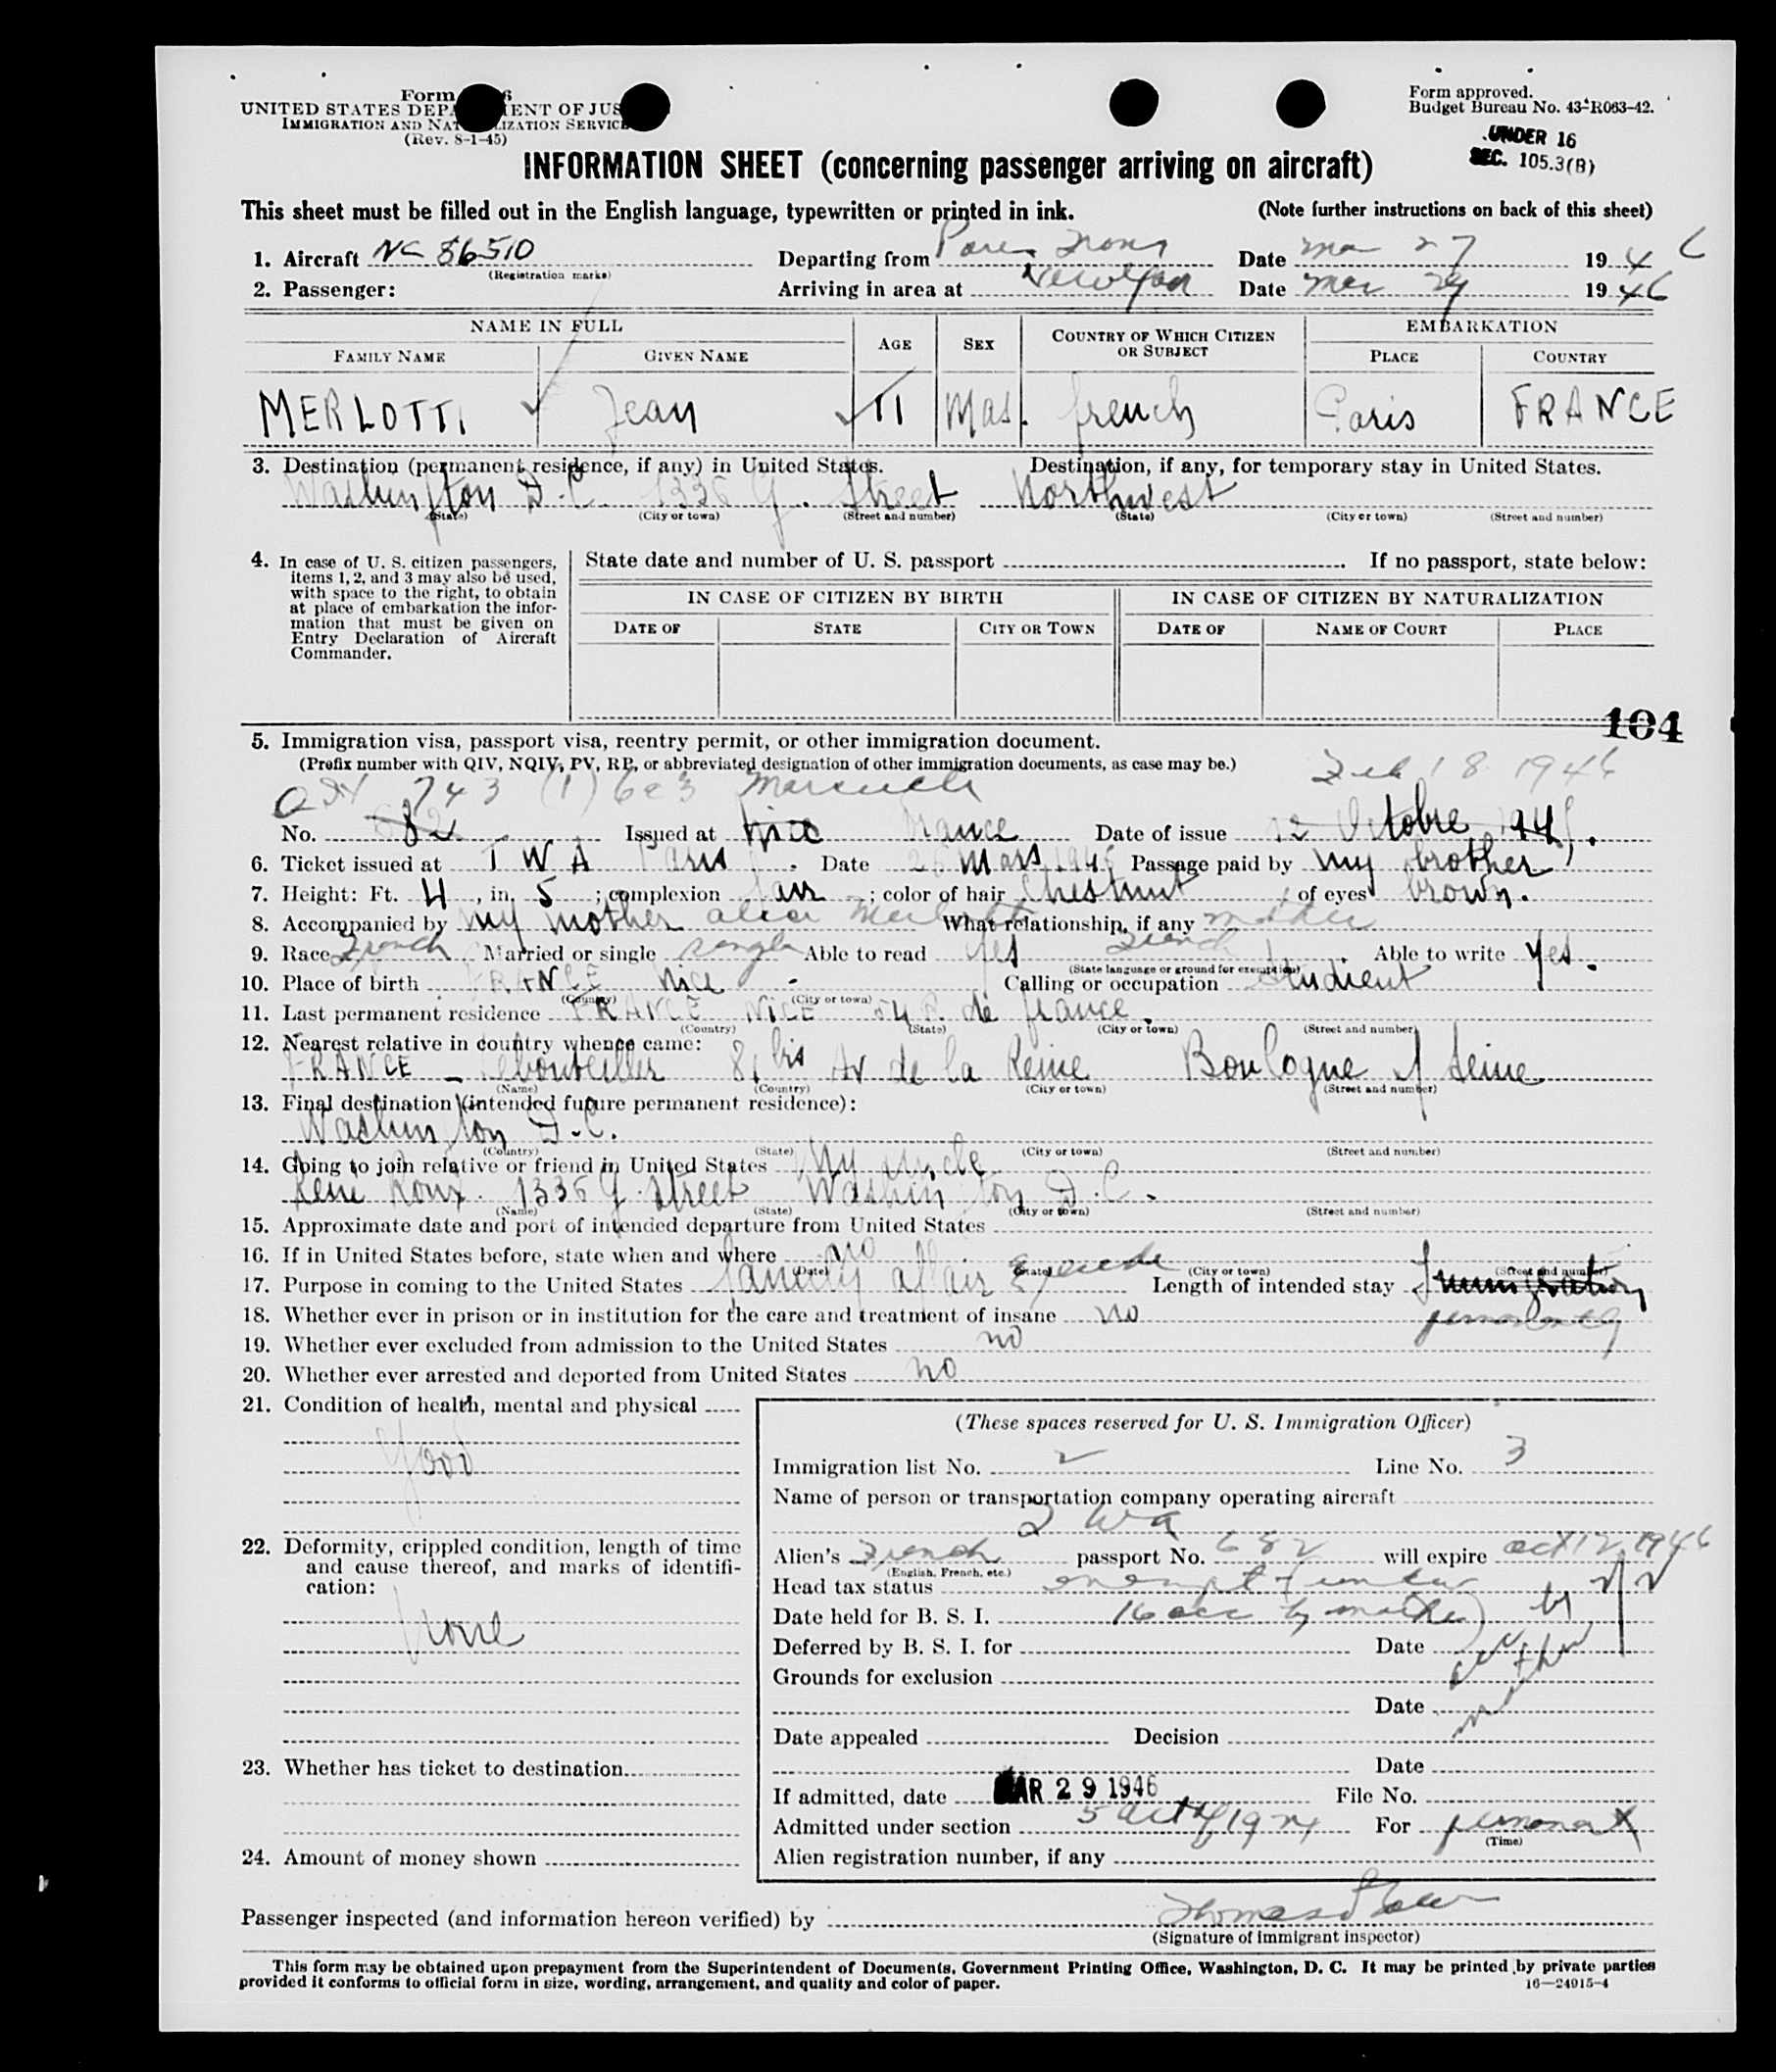 Form 6
UNITED STATES DEPA ENT OF JUS
IMMIGRATION AND NAT IZATION SERVICE
(Rev. 8-1-45)
Form approved.
Budget Bureau No. 43-R063-42.
UNDER 16
SEC. 105.3(B)
INFORMATION SHEET (concerning passenger arriving on aircraft)
This sheet must be filled out in the English language, typewritten or printed in ink. (Note further instructions on back of this sheet)
1. Aircraft NC 86510 Departing from Date Mar 27 1946
(Registration marks)
2. Passenger: Arriving in area at New York Date Mar 29 1946
NAME IN FULL AGE SEX COUNTRY OF WHICH CITIZEN OR SUBJECT EMBARKATION
FAMILY NAME GIVEN NAME PLACE COUNTRY
MERLOTTI Jean 11 Mas. french Paris FRANCE
3. Destination (permanent residence, if any) in United States. Destination, if any, for temporary stay in United States.
Washington D.C. 1336 G. Street Northwest
(State) (City or town) (Street and number) (State) (City or town) (Street and number)
4. In case of U. S. citizen passengers, items 1, 2, and 3 may also be used, with space to the right, to obtain at place of embarkation the information that must be given on Entry Declaration of Aircraft Commander.
State date and number of U. S. passport . If no passport, state below:
IN CASE OF CITIZEN BY BIRTH IN CASE OF CITIZEN BY NATURALIZATION
DATE OF STATE CITY OR TOWN DATE OF NAME OF COURT PLACE
104
5. Immigration visa, passport visa, reentry permit, or other immigration document.
(Prefix number with QIV, NQIV, PV, RP, or abbreviated designation of other immigration documents, as case may be.)
QIV 743 (1) 6e3 Marseille Feb 18 1946
No. 682 Issued at Nice France Date of issue 12 Octobre 1945.
6. Ticket issued at T W A Paris. Date 26 Mars 1946 Passage paid by my brother
7. Height: Ft. 4, in. 5; complexion fair; color of hair Chestnut; of eyes brown.
8. Accompanied by my mother What relationship, if any mother
9. Race French Married or single single Able to read yes French Able to write yes.
(State language or ground for exemption)
10. Place of birth FRANCE Nice - Calling or occupation Student
(Country) (City or town)
11. Last permanent residence FRANCE NICE 54 R. de france.
(Country) (State) (City or town) (Street and number)
12. Nearest relative in country whence came:
FRANCE - Lebouteiller 81 bis Av de la Reine Boulogne s/ Seine
(Name) (Country) (City or town) (Street and number)
13. Final destination (intended future permanent residence):
Washington D.C.
(Country) (State) (City or town) (Street and number)
14. Going to join relative or friend in United States My uncle
René Roux. 1336 G. Street Washington D.C.
(Name) (State) (City or town) (Street and number)
15. Approximate date and port of intended departure from United States
16. If in United States before, state when and where no
(Date) (State) (City or town) (Street and number)
17. Purpose in coming to the United States family affair Length of intended stay Immigration
permanently
18. Whether ever in prison or in institution for the care and treatment of insane no
19. Whether ever excluded from admission to the United States no
20. Whether ever arrested and deported from United States no
21. Condition of health, mental and physical
good
22. Deformity, crippled condition, length of time and cause thereof, and marks of identification:
None
23. Whether has ticket to destination
24. Amount of money shown
(These spaces reserved for U. S. Immigration Officer)
Immigration list No. 2 Line No. 3
Name of person or transportation company operating aircraft
T W A
Alien's French passport No. 682 will expire Oct 12 1946
(English, French, etc.)
Head tax status exempt (under
Date held for B. S. I. 16 acc by mother)
Deferred by B. S. I. for Date
Grounds for exclusion
Date
Date appealed Decision
Date
If admitted, date MAR 29 1946 File No.
Admitted under section 5 act of 1924 For permanent
(Time)
Alien registration number, if any
Passenger inspected (and information hereon verified) by Thomas
(Signature of immigrant inspector)
This form may be obtained upon prepayment from the Superintendent of Documents, Government Printing Office, Washington, D. C. It may be printed by private parties
provided it conforms to official form in size, wording, arrangement, and quality and color of paper. 16—24915-4